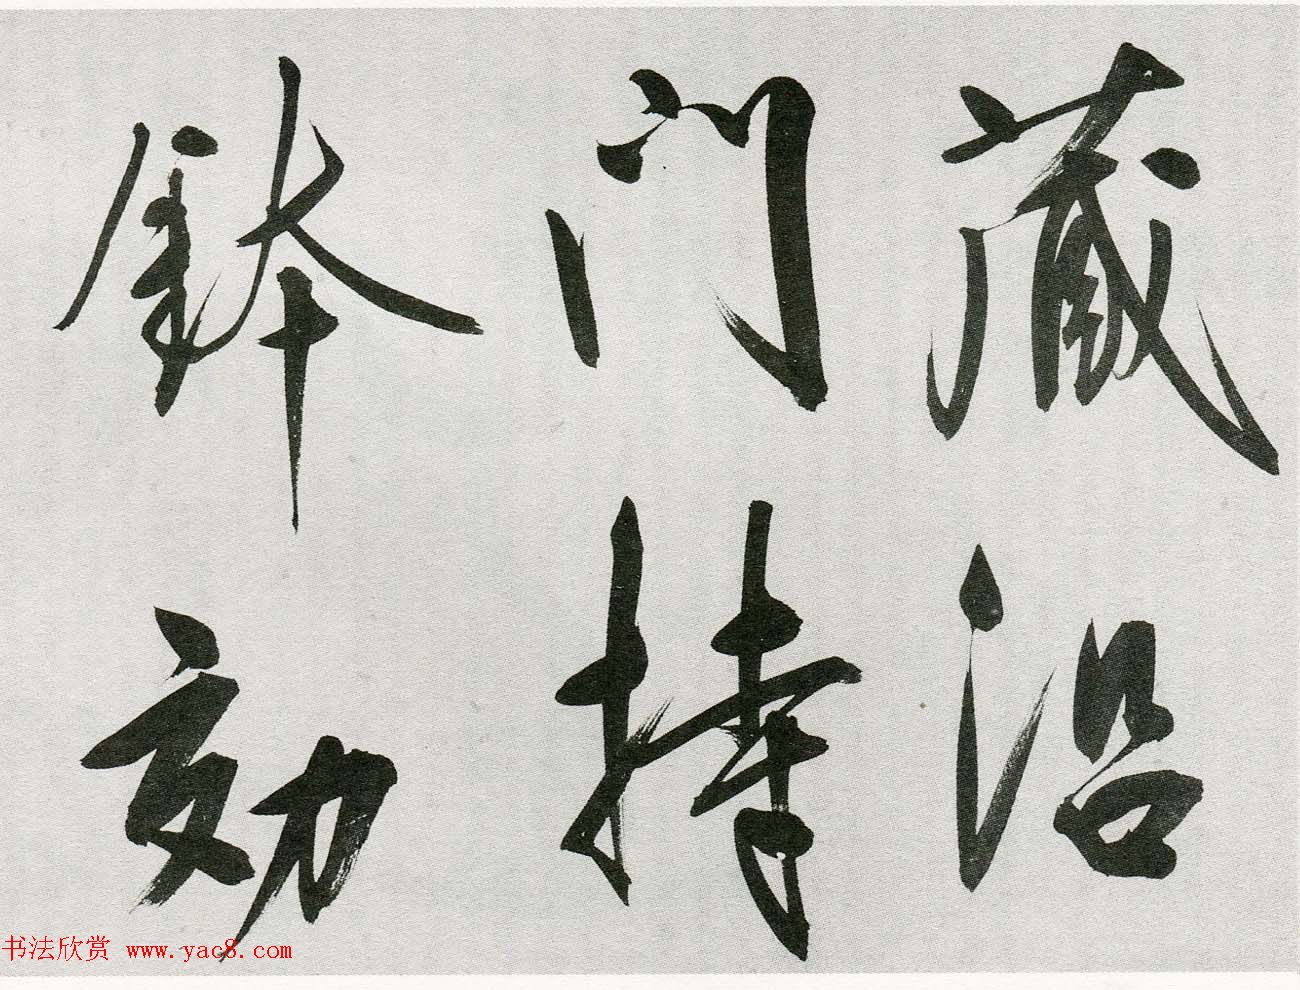 藏沿
门持
鉢効
书法欣赏 www.yac8.com